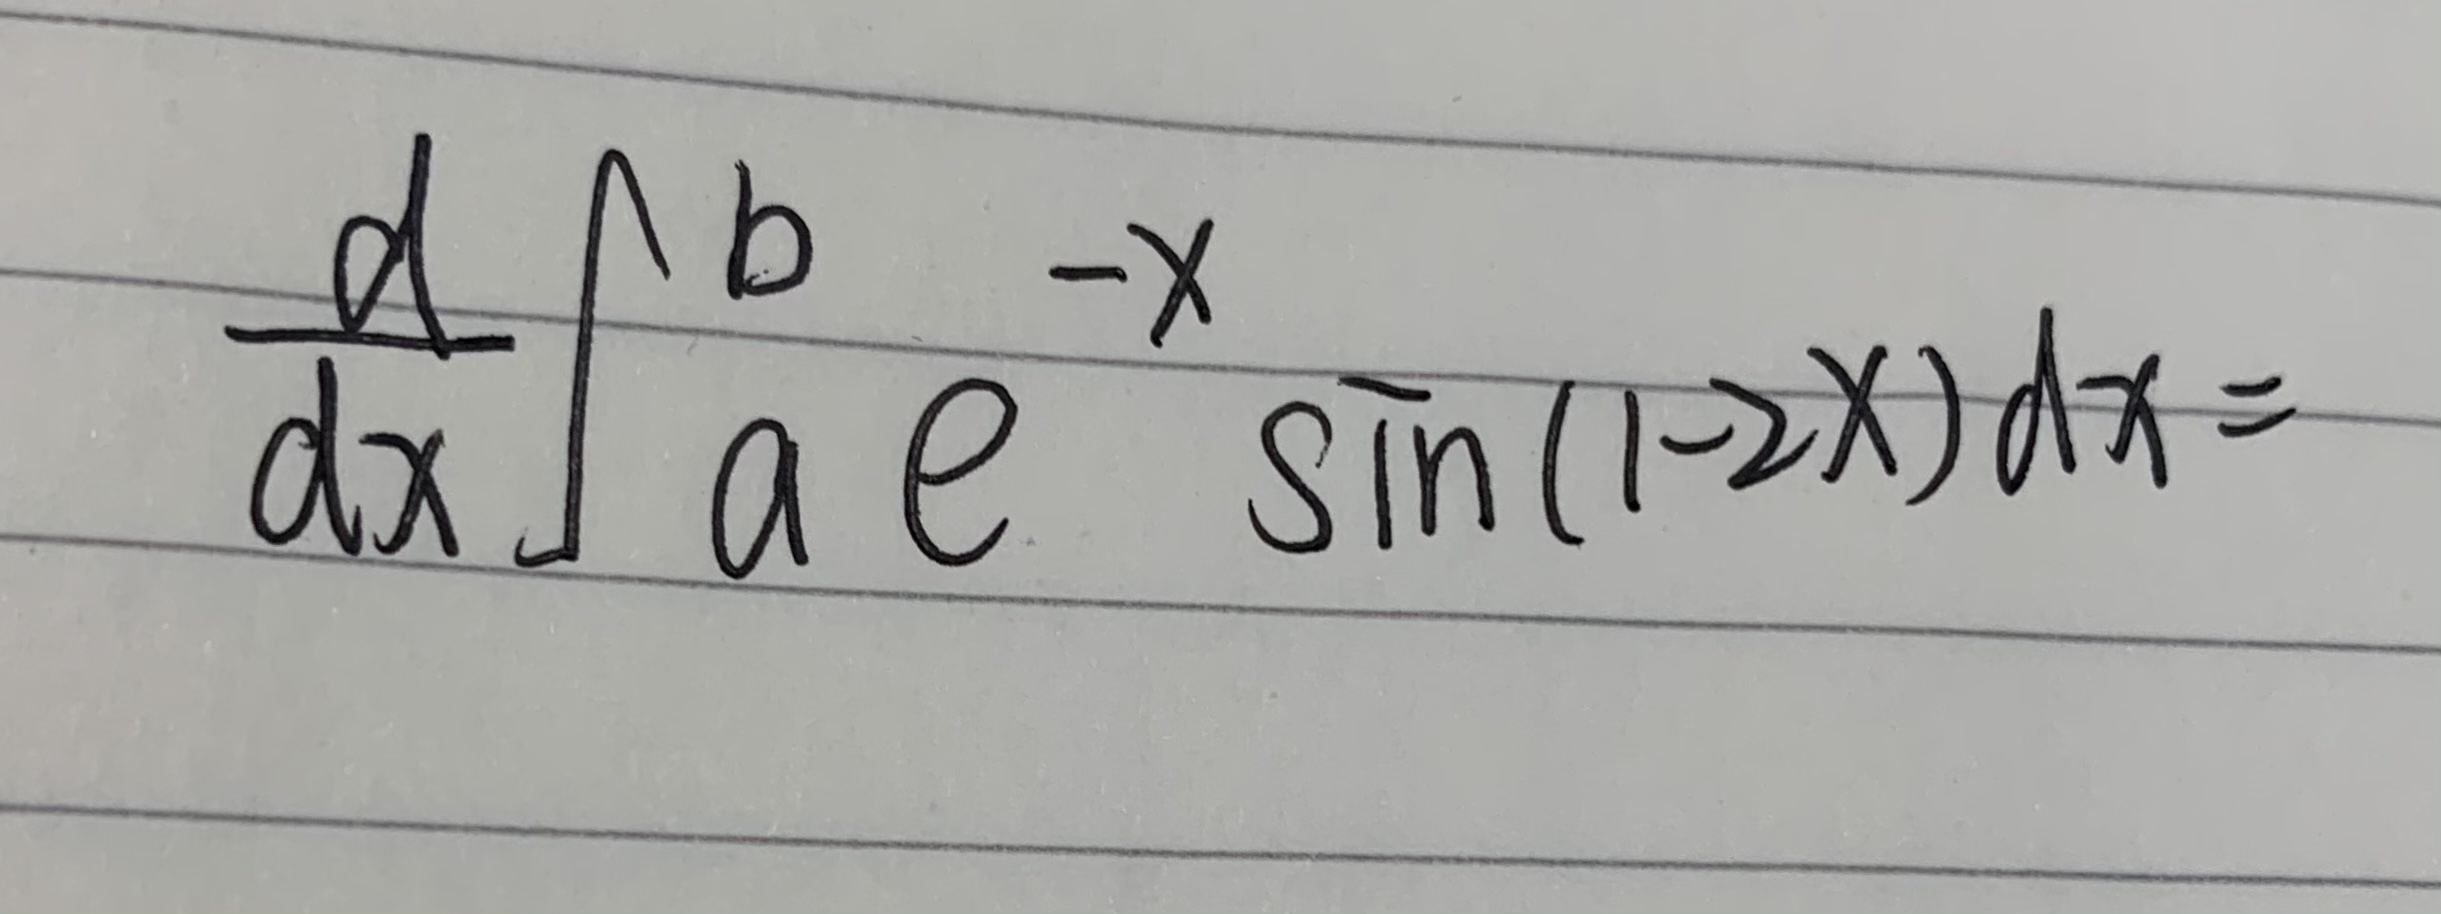 $\frac{d}{dx}\int_{a}^{b} e^{-x} \sin(1-2x)dx=$